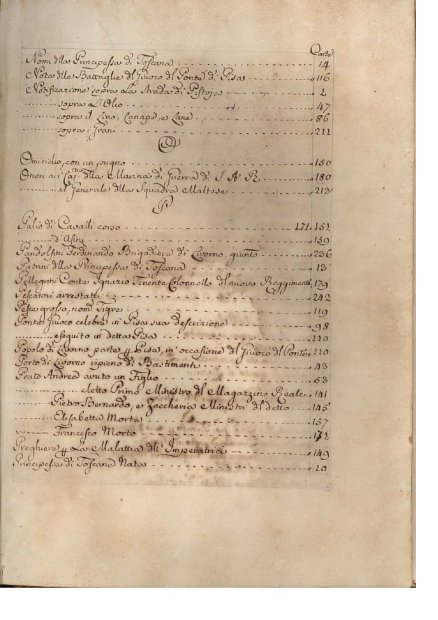 Carte
Nomi della Principessa di Toscana 14
Nota delle Battaglie del Giuoco del Ponte di Pisa 116
Notificazione sopra La Strada di Pistoja 2
sopra L'Olio 47
sopra il Lino, Canapa, e Lana 86
sopra i Grani 211
O
Omicidio, con un pugno 150
Onori a i Cap.ni della Marina di Guerra di S. A. R. 180
al Generale della Squadra Maltese 213
P
Palio di Cavalli corso 171. 151
d'Asini 159
Pandolfini Ferdinando Brigadiere di Livorno, giunto 236
Patrini della Principessa di Toscana 13
Pellegrini Conte Ignazio Tenente Colonnello del nuovo Reggimento 179
Pescatori arrestati 242
Pesce grosso, nom. Tigre 119
Ponte Giuoco celebre in Pisa sua descrizione 98
eseguito in detta Pisa 110
Popolo di Livorno partito p. Pisa, in occasione del Giuoco del Ponte 110
Porto di Livorno ripieno di Bastimenti 43
Prato Andrea avuto un Figlio 63
eletto Primo Ministro del Magazzino Reale 141
Pietro Bernardo, e Zaccheria Ministri del detto 145
Elisabetta Morta 157
Francesco Morto 172
Preghiere p. La Malattia dell'Imperatrice 149
Principessa di Toscana Nata 10